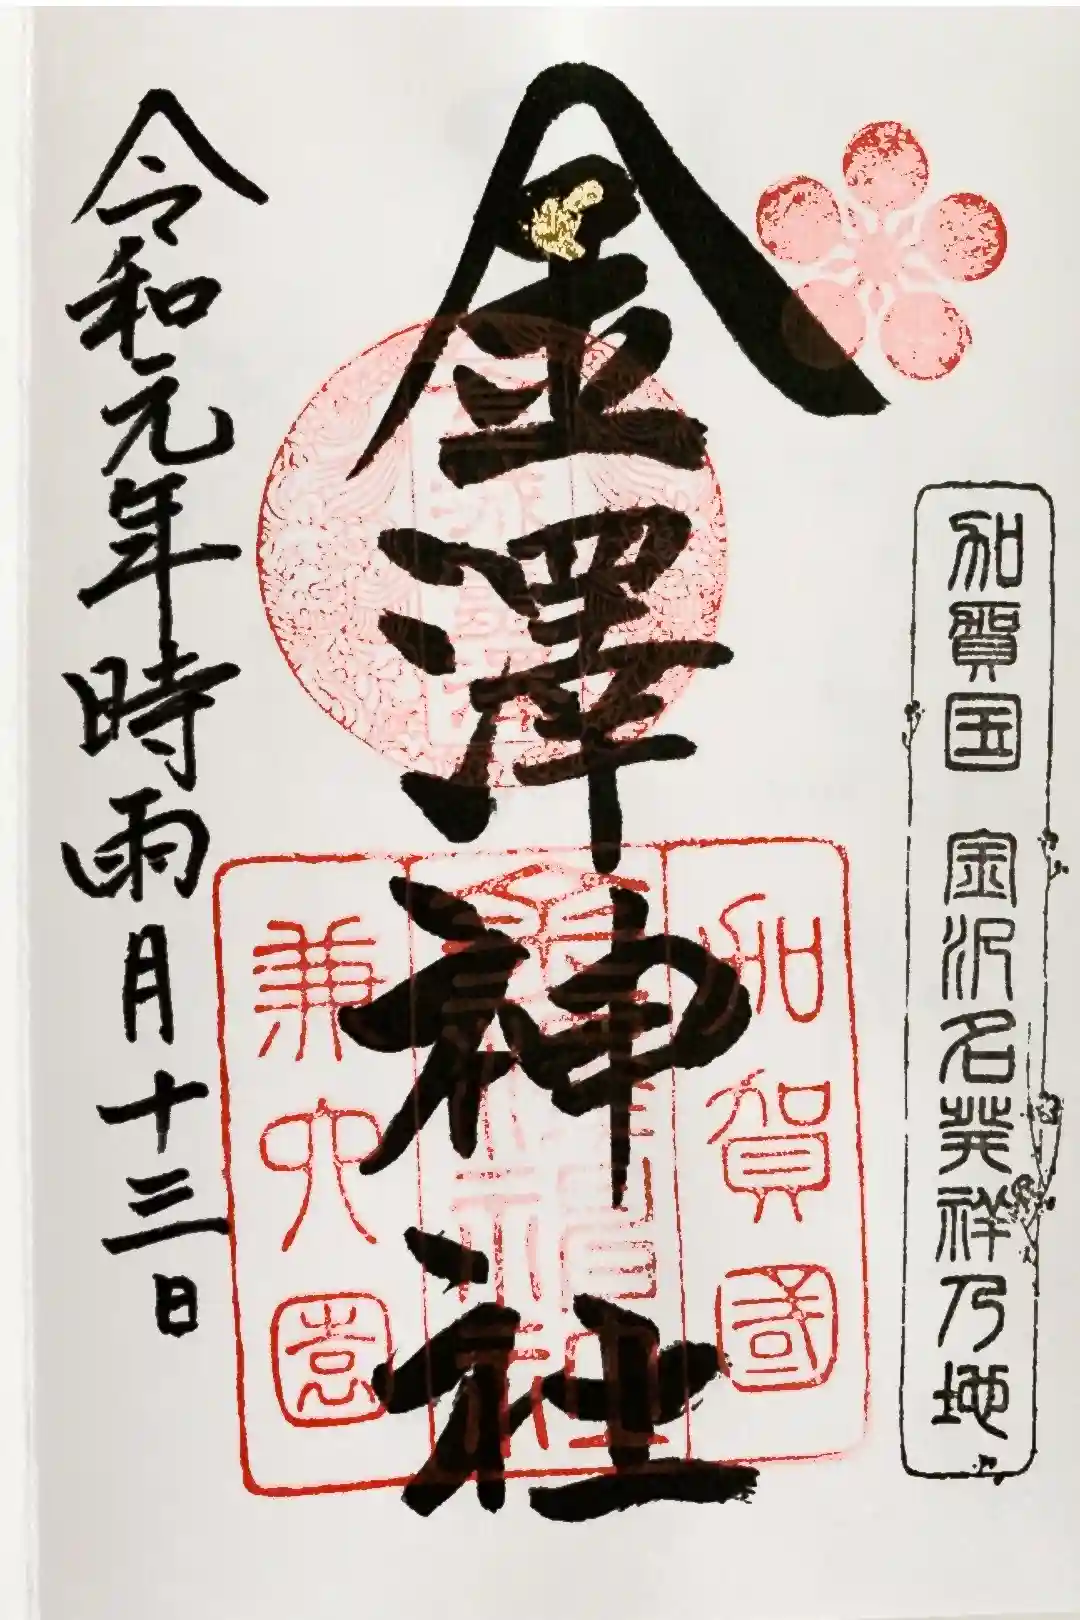 加賀国 金沢名発祥乃地
加賀國
金澤神社
兼六園
令和元年時雨月十三日